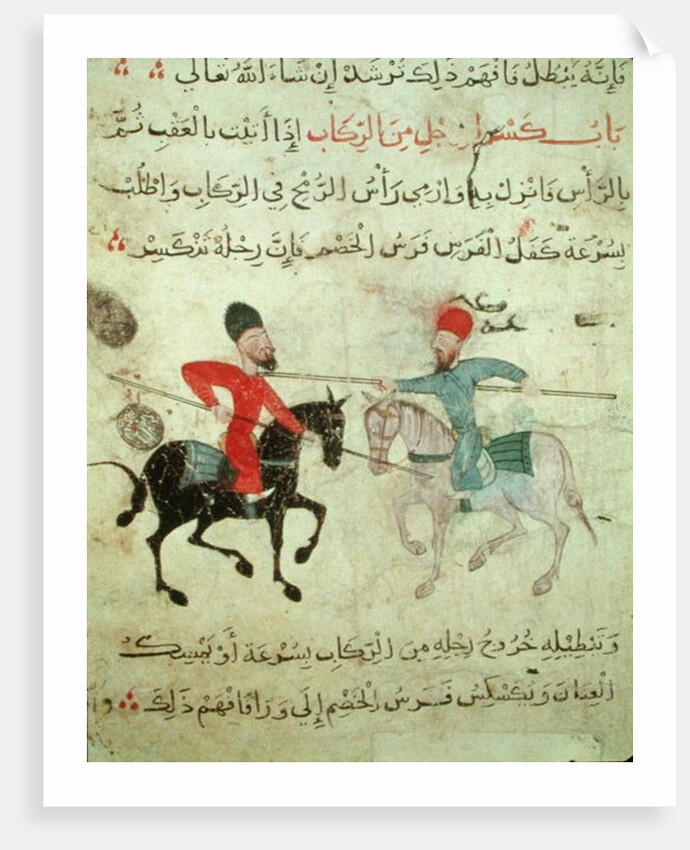 فَإِنَّهُ يَبْطُلُ فَافْهَمْ ذَلِكَ تَرْشَدْ إِنْ شَاءَ اللَّهُ تَعَالَى
بَابُ كَسْرِ الرِّجْلِ مِنَ الرِّكَابِ إِذَا أَتَيْتَ بِالْعَقْبِ ثُمَّ
بِالرَّأْسِ فَانْزِلْ بِهِ وَارْمِي رَأْسُ الرُّمْحِ فِي الرِّكَابِ وَاطْلُبْ
بِسُرْعَةٍ كَفَلُ الْفَرَسِ فَرَسُ الْخَصْمِ فَإِنَّ رِجْلُهُ تَنْكَسِرْ
وَتَبْطِيلِهِ خُرُوجُ رِجْلِهِ مِنَ الرِّكَابِ بِسُرْعَةٍ أَوْ يَمْسِكُ
الْعِنَانَ وَ فَرَسُ الْخَصْمِ إِلَى وَرَا فَافْهَمْ ذَلِكَ